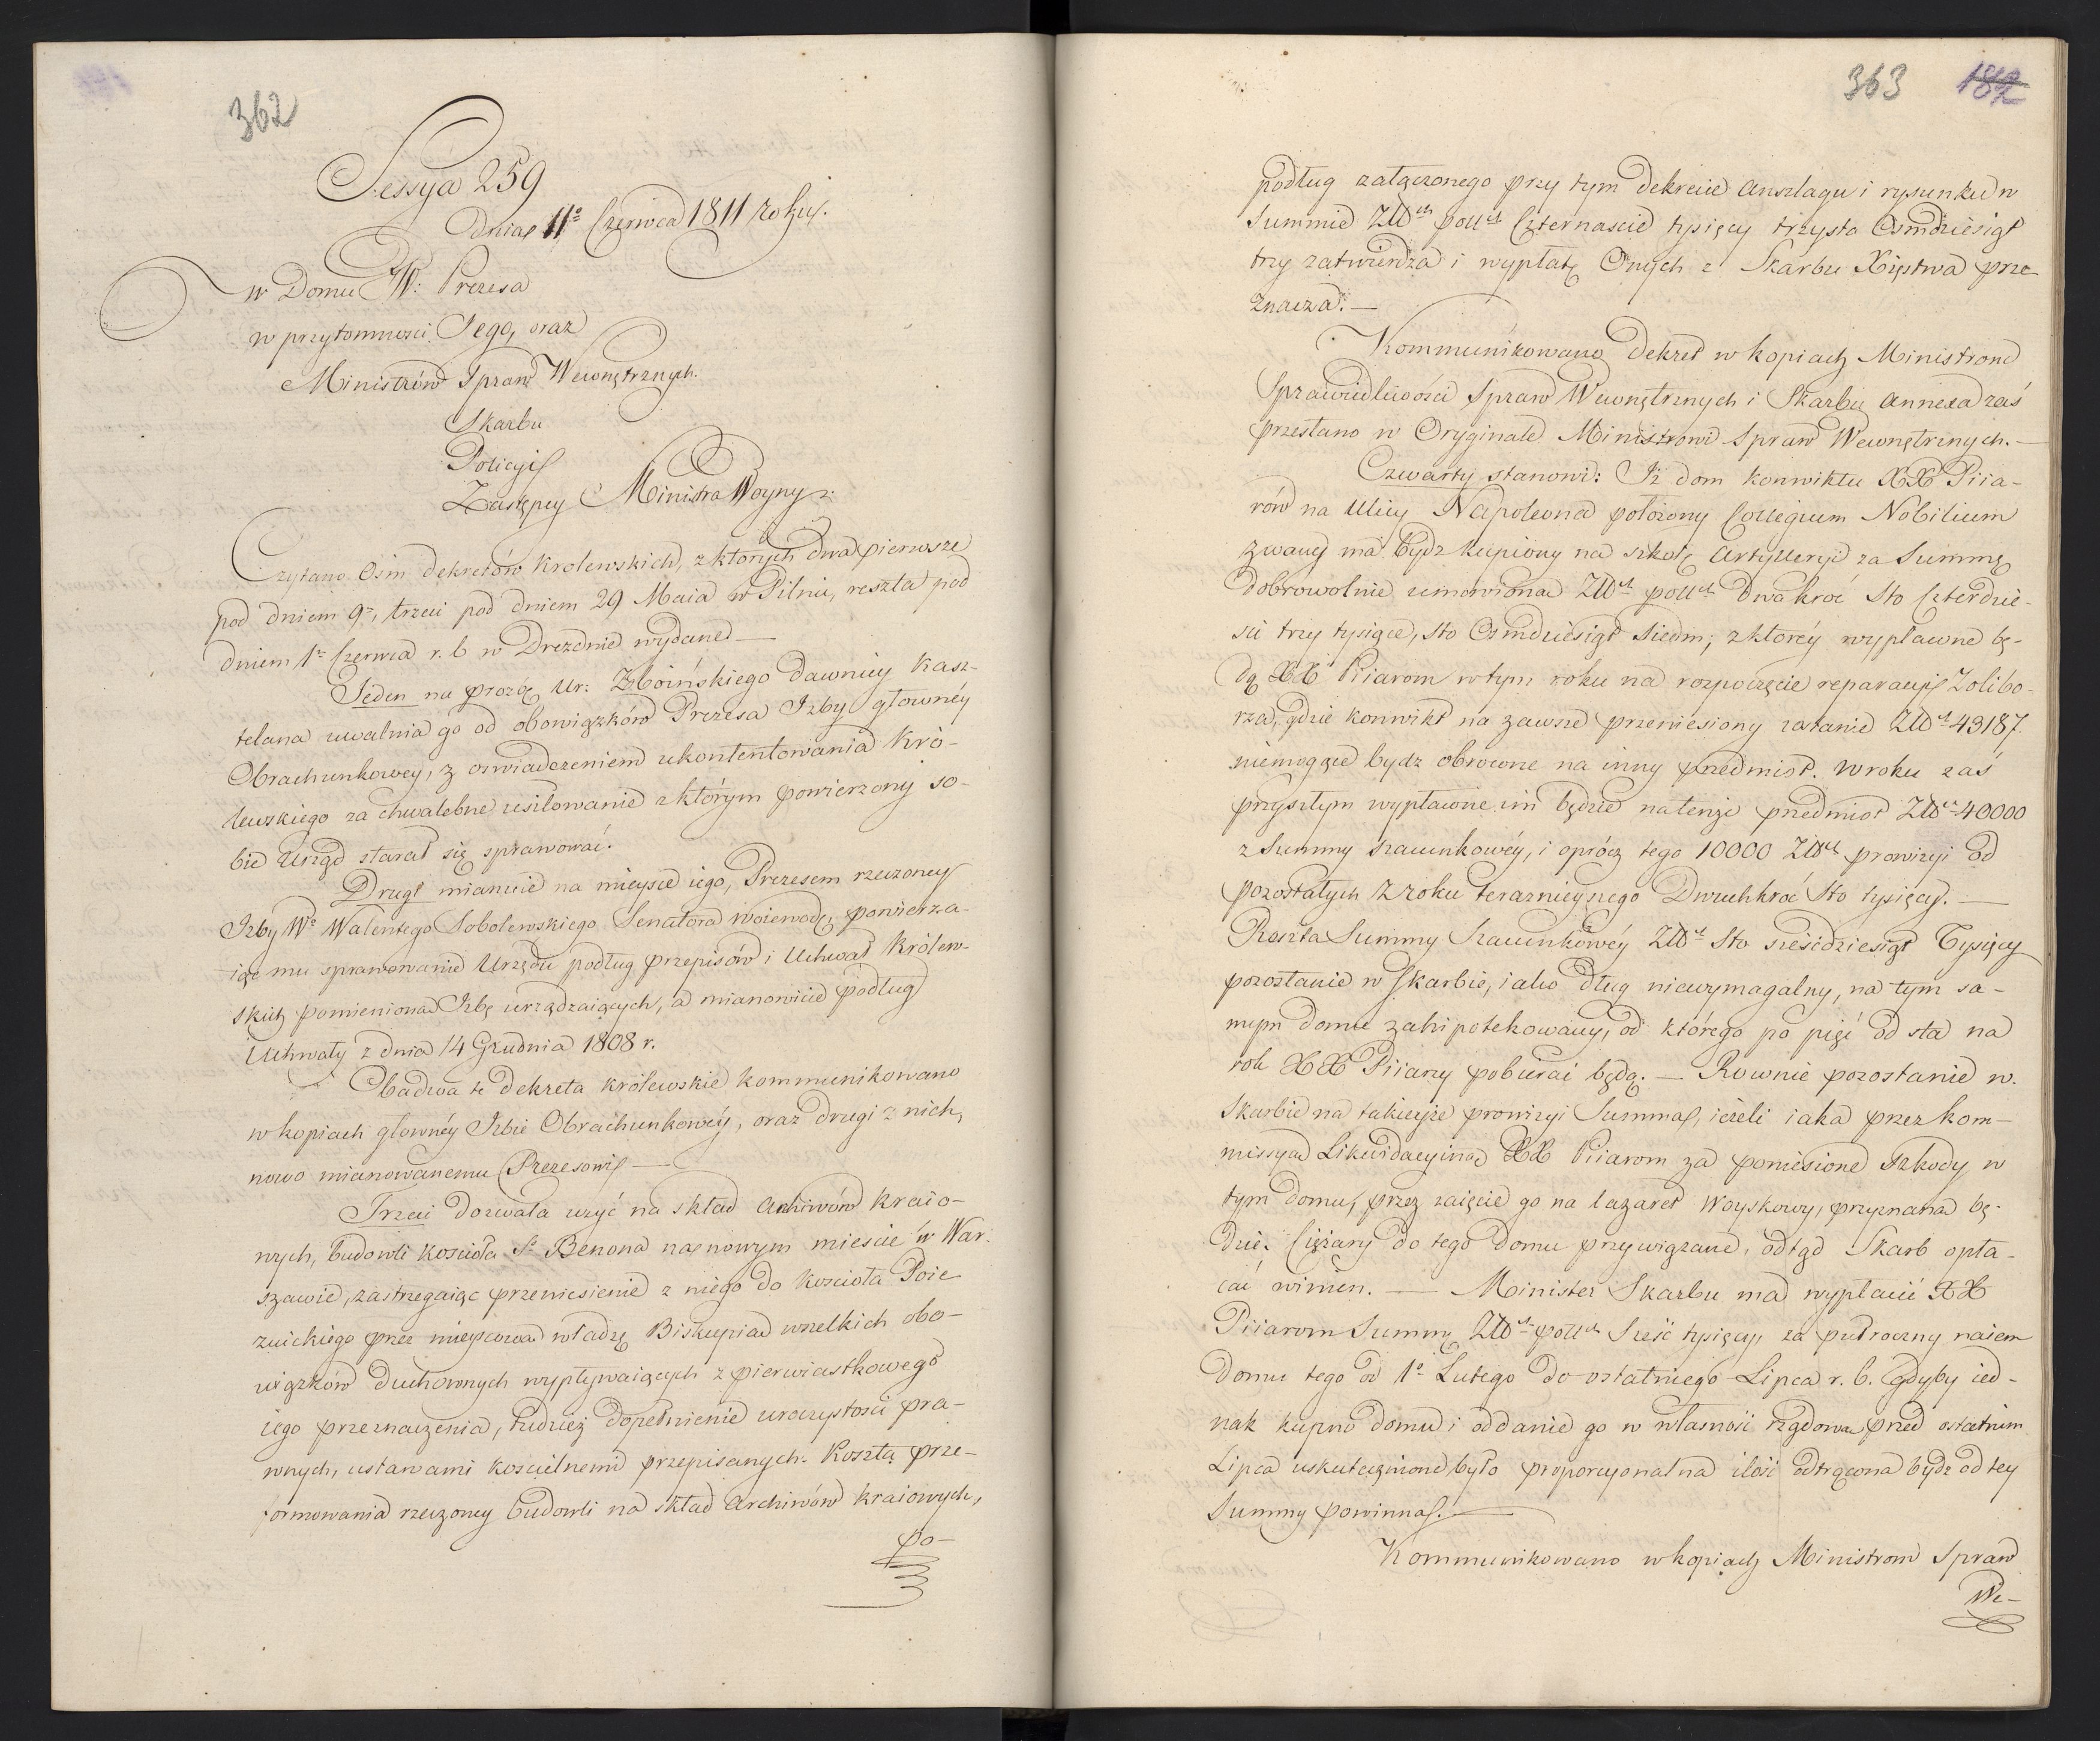 362
Sessya 259
dnia 11º Czerwca 1811 roku.
w Domu W: Prezesa
w przytomności Jego, oraz
Ministrów Spraw Wewnętrznych.
Skarbu
Policyi
Zastępcy Ministra Woyny
Czytano Ośm dekretów Krolewskich, z ktorych dwa pierwsze
pod dniem 9º, trzeci pod dniem 29 Maia w Pilnic, reszta pod
dniem 1º Czerwca r. b w Dreznie wydane —
Jeden na prozbę Ur: Zboińskiego dawniey Kasz-
telana uwalnia go od obowiązków Prezesa Izby głowney
Obrachunkowey, z oswiadczeniem ukontentowania Kró-
lewskiego za chwalebne usiłowanie z którym powierzony so-
bie Urząd starał się sprawować.
Drugi mianuie na mieysce iego, Prezesem rzeczoney
Izby Wº Walentego Sobolewskiego Senatora woiewodę, powierza-
iąc mu sprawowanie Urzędu podług przepisów i Uchwał Królew-
skich pomieniona Izbę urządzaiących, a mianowicie podług
Uchwały z dnia 14 Grudnia 1808 r.
Obadwa te dekreta królewskie kommunikowano
w kopiach głowney Izbie Obrachunkowéy, oraz drugi z nich,
nowo mianowanemu Prezesowi —
Trzeci dozwala użyć na skład Archiwów kraio-
wych, budowli kościoła Sº Benona na nowym mieście w War-
szawie, zastrzegaiąc przeniesienie z niego do kościoła Poie
zuickiego przez mieyscową władzę Biskupią wszelkich obo-
wiązków duchownych wypływaiących z pierwiastkowego
iego przeznaczenia, tudzież dopełnienie uroczystości pra-
wnych, ustawami kościelnemi przepisanych. Koszta prze-
formowania rzeczoney budowli na skład Archiwów kraiowych,
po-
363 182
podług załączonego przy tym dekrecie Anszlagu i rysunku w
Summie Złłch pollch Czternaście tysięcy trzysta Osmdziesiąt
trzy zatwierdza i wypłatę Onych z Skarbu Xięstwa prze
znacza. —
Kommunikowano dekret w kopiach Ministrom
Sprawiedliwości Spraw Wewnętrznych i Skarbu annexa zaś
przesłano w Oryginale Ministrowi Spraw Wewnętrznych. —
Czwarty stanowi: Iż dom konwiktu XX Piia-
rów na Ulicy Napoleona położony Collegium Nobilium
zwany ma bydz kupiony na szkołę Artylleryi za Summę
dobrowolnie umowioną Złłch pollch Dwakroć Sto Czterdzie-
sci trzy tysiące, sto Osmdziesiąt siedm; z ktorey wypłacone bę-
dą XX Piiarom w tym roku na rozpoczęcie reparacyi Zolibo-
rza, gdzie konwikt na zawsze przeniesiony zostanie Złłch 43187
niemogące bydz obrocone na inny przedmiot. W roku zaś
przyszłym wypłacone im będzie na tenże przedmiot Złłch 40000
z Summy szacunkowéy, i oprócz tego 10000 Złłch prowizyi od
pozostałych z roku teraznieyszego Dwuchkroć Sto tysięcy. —
Reszta Summy Szacunkowéy Złłch Sto sześćdziesiąt Tysięcy
pozostanie w Skarbie, iako dług niewymagalny, na tym sa-
mym domu zahipotekowany, od którego po pięć od sta na
rok XX Piiarzy pobierać będą. — Rownie pozostanie w
Skarbie na takieyże prowizyi Summa, ieżeli iaka przez kom-
missya Likwidacyina XX Piiarom za poniesione szkody w
tym domu, przez zaięcie go na lazaret woyskowy, przyznana bę-
dzie. Ciężary do tego domu przywiązane, odtąd Skarb opła-
cać winien. — Minister Skarbu ma wypłacić XX
Piiarom Summę Złłch pollch Sześć tysięcy, za pułroczny naiem
domu tego od 1º Lutego do ostatniego Lipca r. b. gdyby ied-
nak kupno domu i oddanie go w własność rządową przed ostatnim
Lipca uskutecznione było proporcyonalna ilość odtrącona bydz od tey
Summy powinna. —
Kommunikowano w kopiach Ministrom Spraw
We-